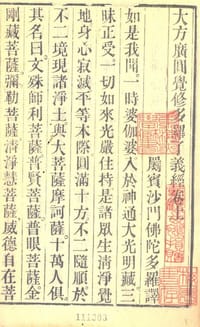 大方廣圓覺修多羅了義經卷上
罽賓沙門佛陀多羅譯
如是我聞一時婆伽婆入於神通大光明藏三
昧正受一切如來光嚴住持是諸眾生清淨覺
地身心寂滅平等本際圓滿十方不二隨順於
不二境現諸淨土與大菩薩摩訶薩十萬人俱
其名曰文殊師利菩薩普賢菩薩普眼菩薩金
剛藏菩薩彌勒菩薩清淨慧菩薩威德自在菩